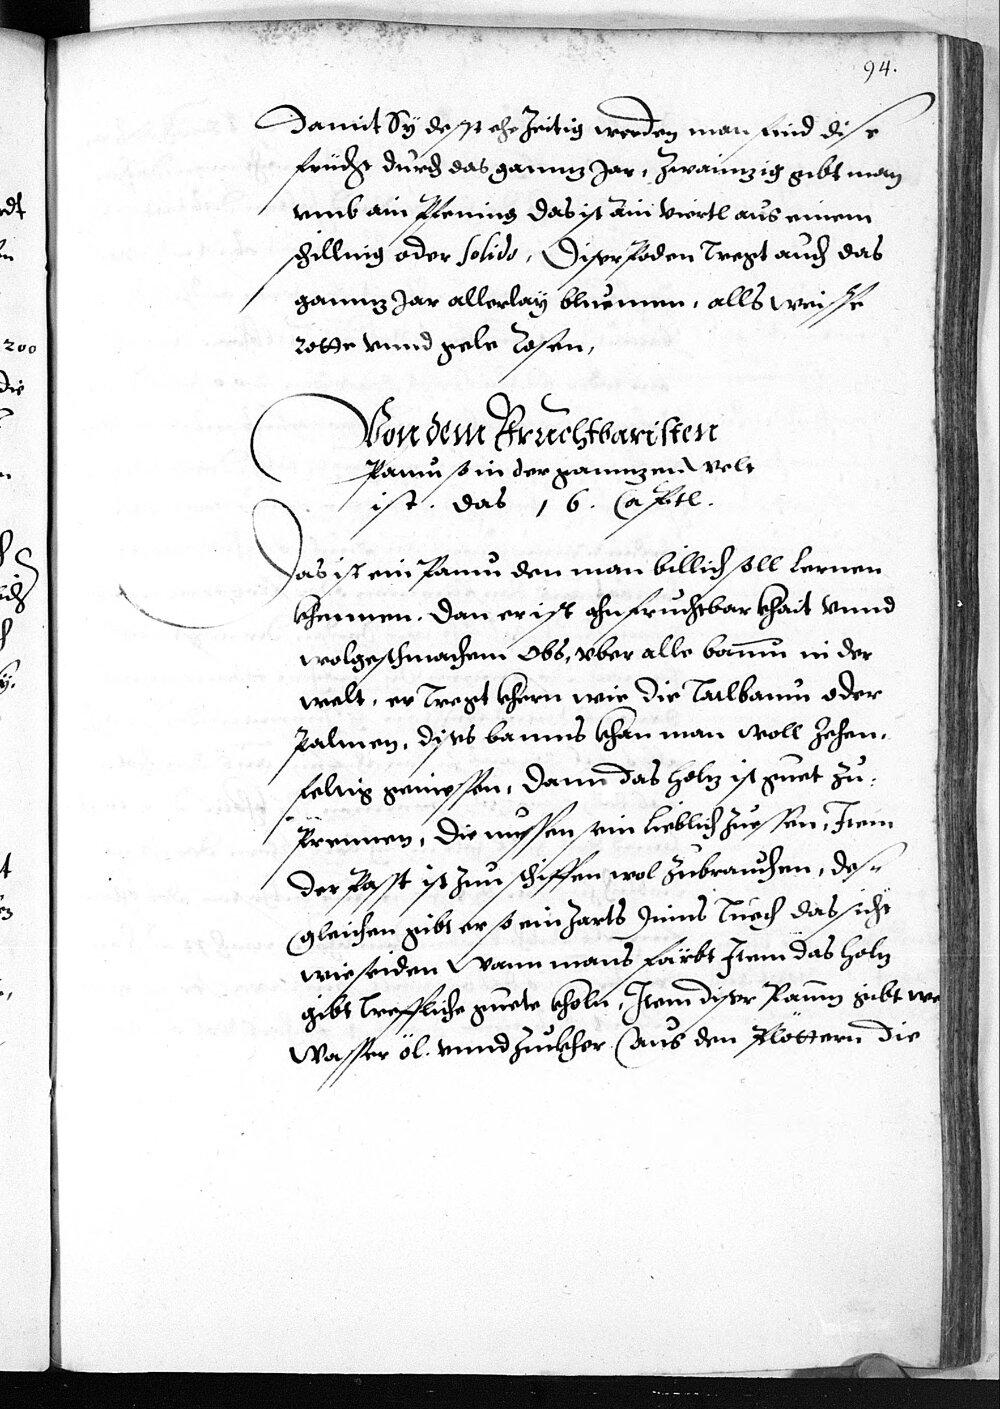 94.
damit Sÿ dest ehe Zeitig werden man find dise
frücht durch das gannz Jar, Zwainzig gibt man
vmb ain Pfening das ist ain viertl aus einem
schilling oder solido, Diser Poden Tregt auch das
gannz Jar allerlaÿ bluemen, alls weisse
rotte vnnd gele Rosen,
Von dem Fruchtbaristen
Pamu so in der ganntzen Welt
ist. das 16. Capitl.
Das ist ein Pamu den man billich soll lernen
khennen. Dan er ist ahn fruchtbarkhait vnnd
wolgeschmachem Obs, vber alle bamu in der
welt, er Tregt khern wie die Tatlbamu oder
Palmen, dises bamus khan man woll Zehen,
feltig geniessen, dann das holz ist guet zu
Prennen, die nussen sein lieblich Zuessen, Item
der Past ist zun schiffen wol Zubrauchen, des
gleichen gibt er so ein Zarts dinns Tuech das sicht
wie seiden Wann mans färbt Item das holz
gibt Treffliche guete kholn, Item diser Pamu gibt we
Wasser öl. vnnd Zuckher (aus den Plöttern die
dt
200
die